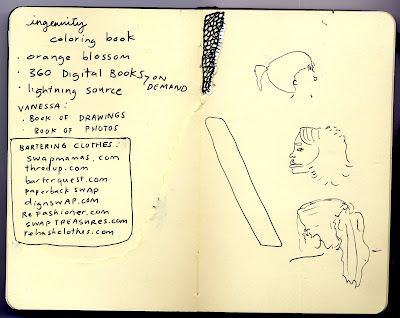 ingenuity
coloring book
· orange blossom
· 360 Digital Books > ON DEMAND
· lightning source
VANESSA:
· BOOK OF DRAWINGS
· BOOK OF PHOTOS
BARTERING CLOTHES:
swapmamas.com
thredup.com
barterquest.com
paperback swap
dignswap.com
ReFashioner.com
SWAPTREASURES.com
rehashclothes.com